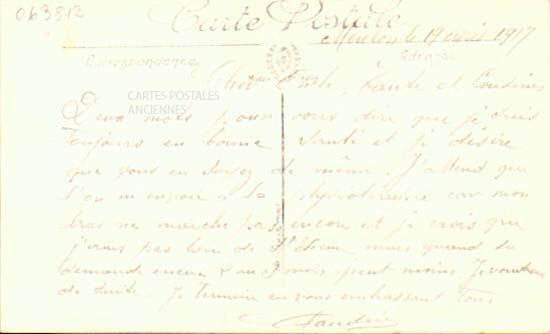 063812
Carte Postale
le 19 avril 1917
Correspondance
Adresse
Cher Oncle, Tante et Cousines
CARTES POSTALES
ANCIENNES
Deux mots pour vous dire que je suis
toujours en bonne santé et je désire
que vous en soyez de même. J'attend que
l'on m'envoie à la physiothérapie car mon
bras ne marche pas encore et je crois que
j'aurais pas loin de mais quand
demande encore 2 ou 3 mois peut moins.
de suite. Je termine en vous embrassant tous